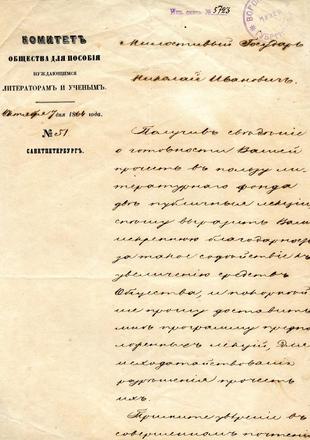 Инв. опись № 5723
КОМИТЕТЪ
ОБЩЕСТВА ДЛЯ ПОСОБІЯ
НУЖДАЮЩИМСЯ
ЛИТЕРАТОРАМЪ И УЧЕНЫМЪ.
Октября 7 дня 186 года.
№ 51
САНКТПЕТЕРБУРГЪ.
Милостивый Государь
Николай Ивановичъ.
Получивъ свѣдѣніе
о готовности Вашей
прочесть въ пользу ли-
тературнаго фонда
двѣ публичныя лекціи
спѣшу выразить Вамъ
искреннюю благодарность
за такое содѣйствіе къ
увеличенію средствъ
Общества, и покорнѣй-
ше прошу доставить
мнѣ программу предпо-
ложенныхъ лекцій, для
исходатайствованія
разрѣшенія прочесть
ихъ.
Примите увѣреніе въ
совершенномъ почтеніи